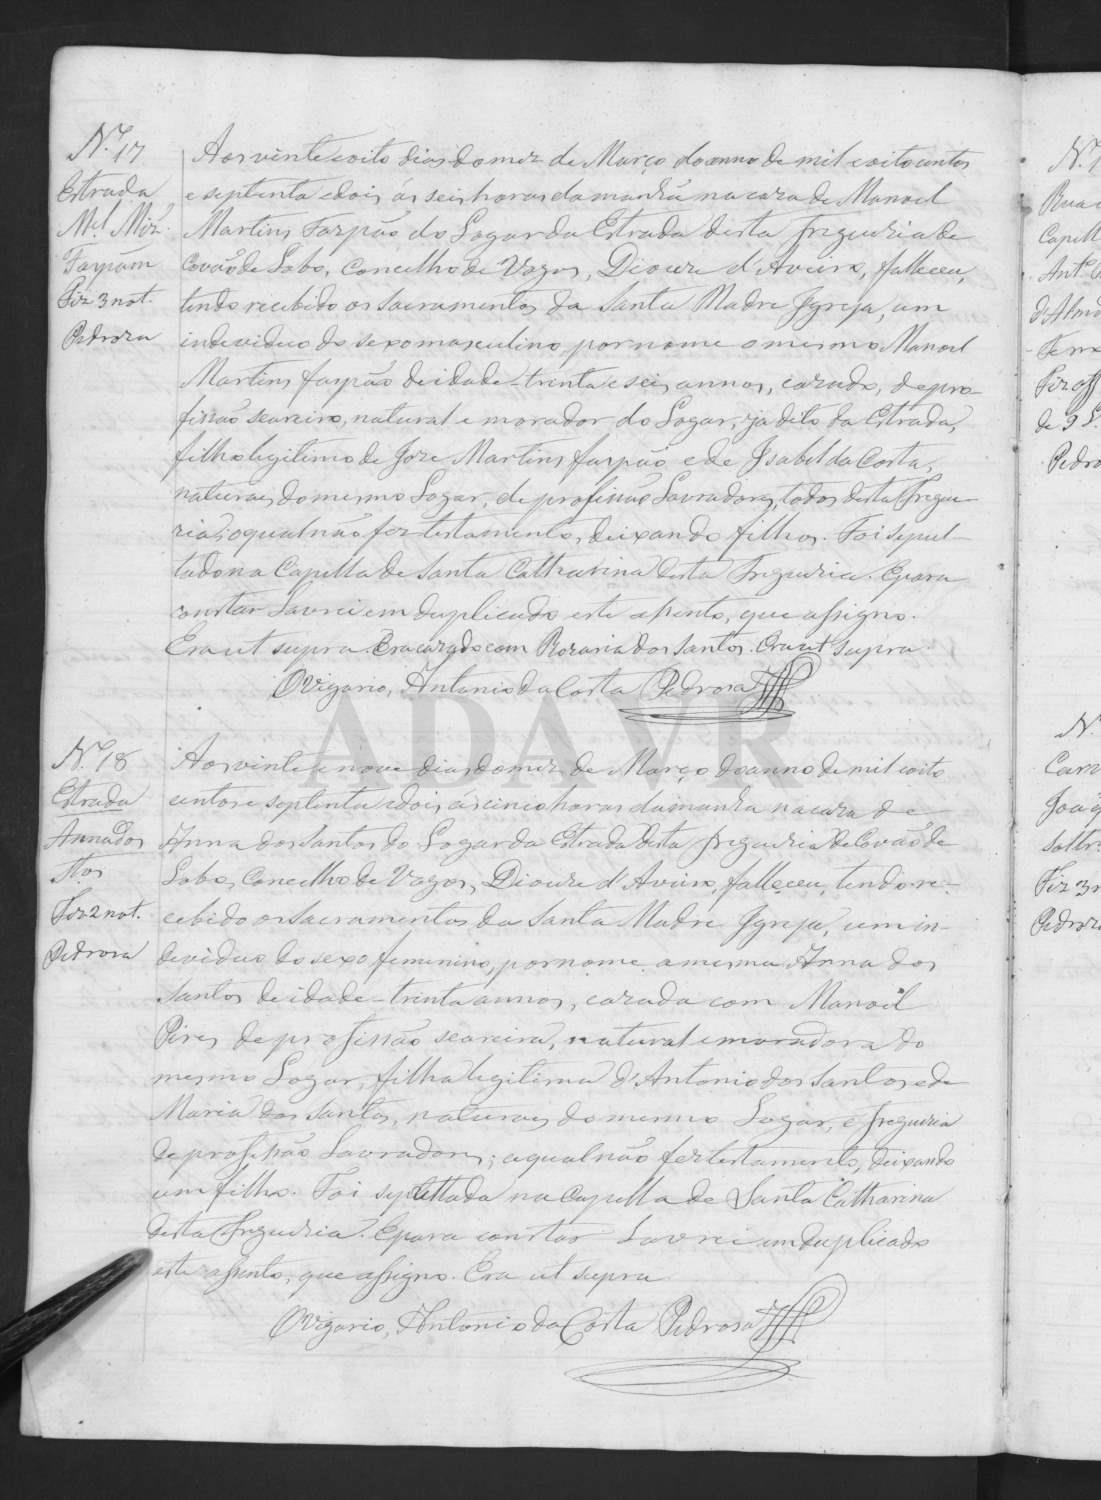 N.º 17
Estrada
M.el Miz.
Farpam
Fiz 3 not.
Pedroza
Aos vinte e oito dias do mez de Março do anno de mil e oito centos
e septenta e dois ás seis horas da manhã na caza de Manoel
Martins Farpão do Logar da Estrada desta freguezia de
Covão de Lobo, Concelho de Vagos, Dioceze d'Aveiro, falleceu,
tendo recebido os Sacramentos da Santa Madre Igreja, um
individuo do sexo masculino, por nome o mesmo Manoel
Martins farpão de idade - trinta e seis annos, cazado, de pro-
fissão seareiro, natural e morador do Logar, ja dito da Estrada,
filho legitimo de Joze Martins farpão e de Isabel da Costa,
naturaes do mesmo Logar, de profissão Lavradores, todos desta Fregue-
zia; o qual não fez testamento, deixando filhos. Foi sepul-
tado na Capella de Santa Catharina desta Freguezia. E para
constar Lavrei em duplicado este assento, que assigno.
Era ut supra. Era cazado com Rozaria dos Santos. Era ut supra.
O Vigario, Antonio da Costa Pedroza
ADAVR
N.º 18
Estrada
Anna dos
Stos
Fiz 2 not.
Pedroza
Aos vinte e nove dias do mez de Março do anno de mil e oito
centos e septenta e dois ás cinco horas da manhã na caza de
Anna dos Santos do Logar da Estrada desta freguezia de Covão de
Lobo, Concelho de Vagos, Dioceze d'Aveiro, falleceu, tendo re-
cebido os Sacramentos da Santa Madre Igreja, um in-
dividuo do sexo femenino, por nome a mesma Anna dos
Santos de idade - trinta annos, cazada com Manoel
Pires de profissão seareira, natural e moradora do
mesmo Logar, filha legitima d'Antonio dos Santos e de
Maria dos Santos, naturaes do mesmo Logar, e freguezia
de profissão Lavradores; a qual não fez testamento, deixando
um filho. Foi sepultada na Capella de Santa Catharina
desta Freguezia. E para constar Lavrei em duplicado
este assento, que assigno. Era ut supra
O Vigario, Antonio da Costa Pedroza